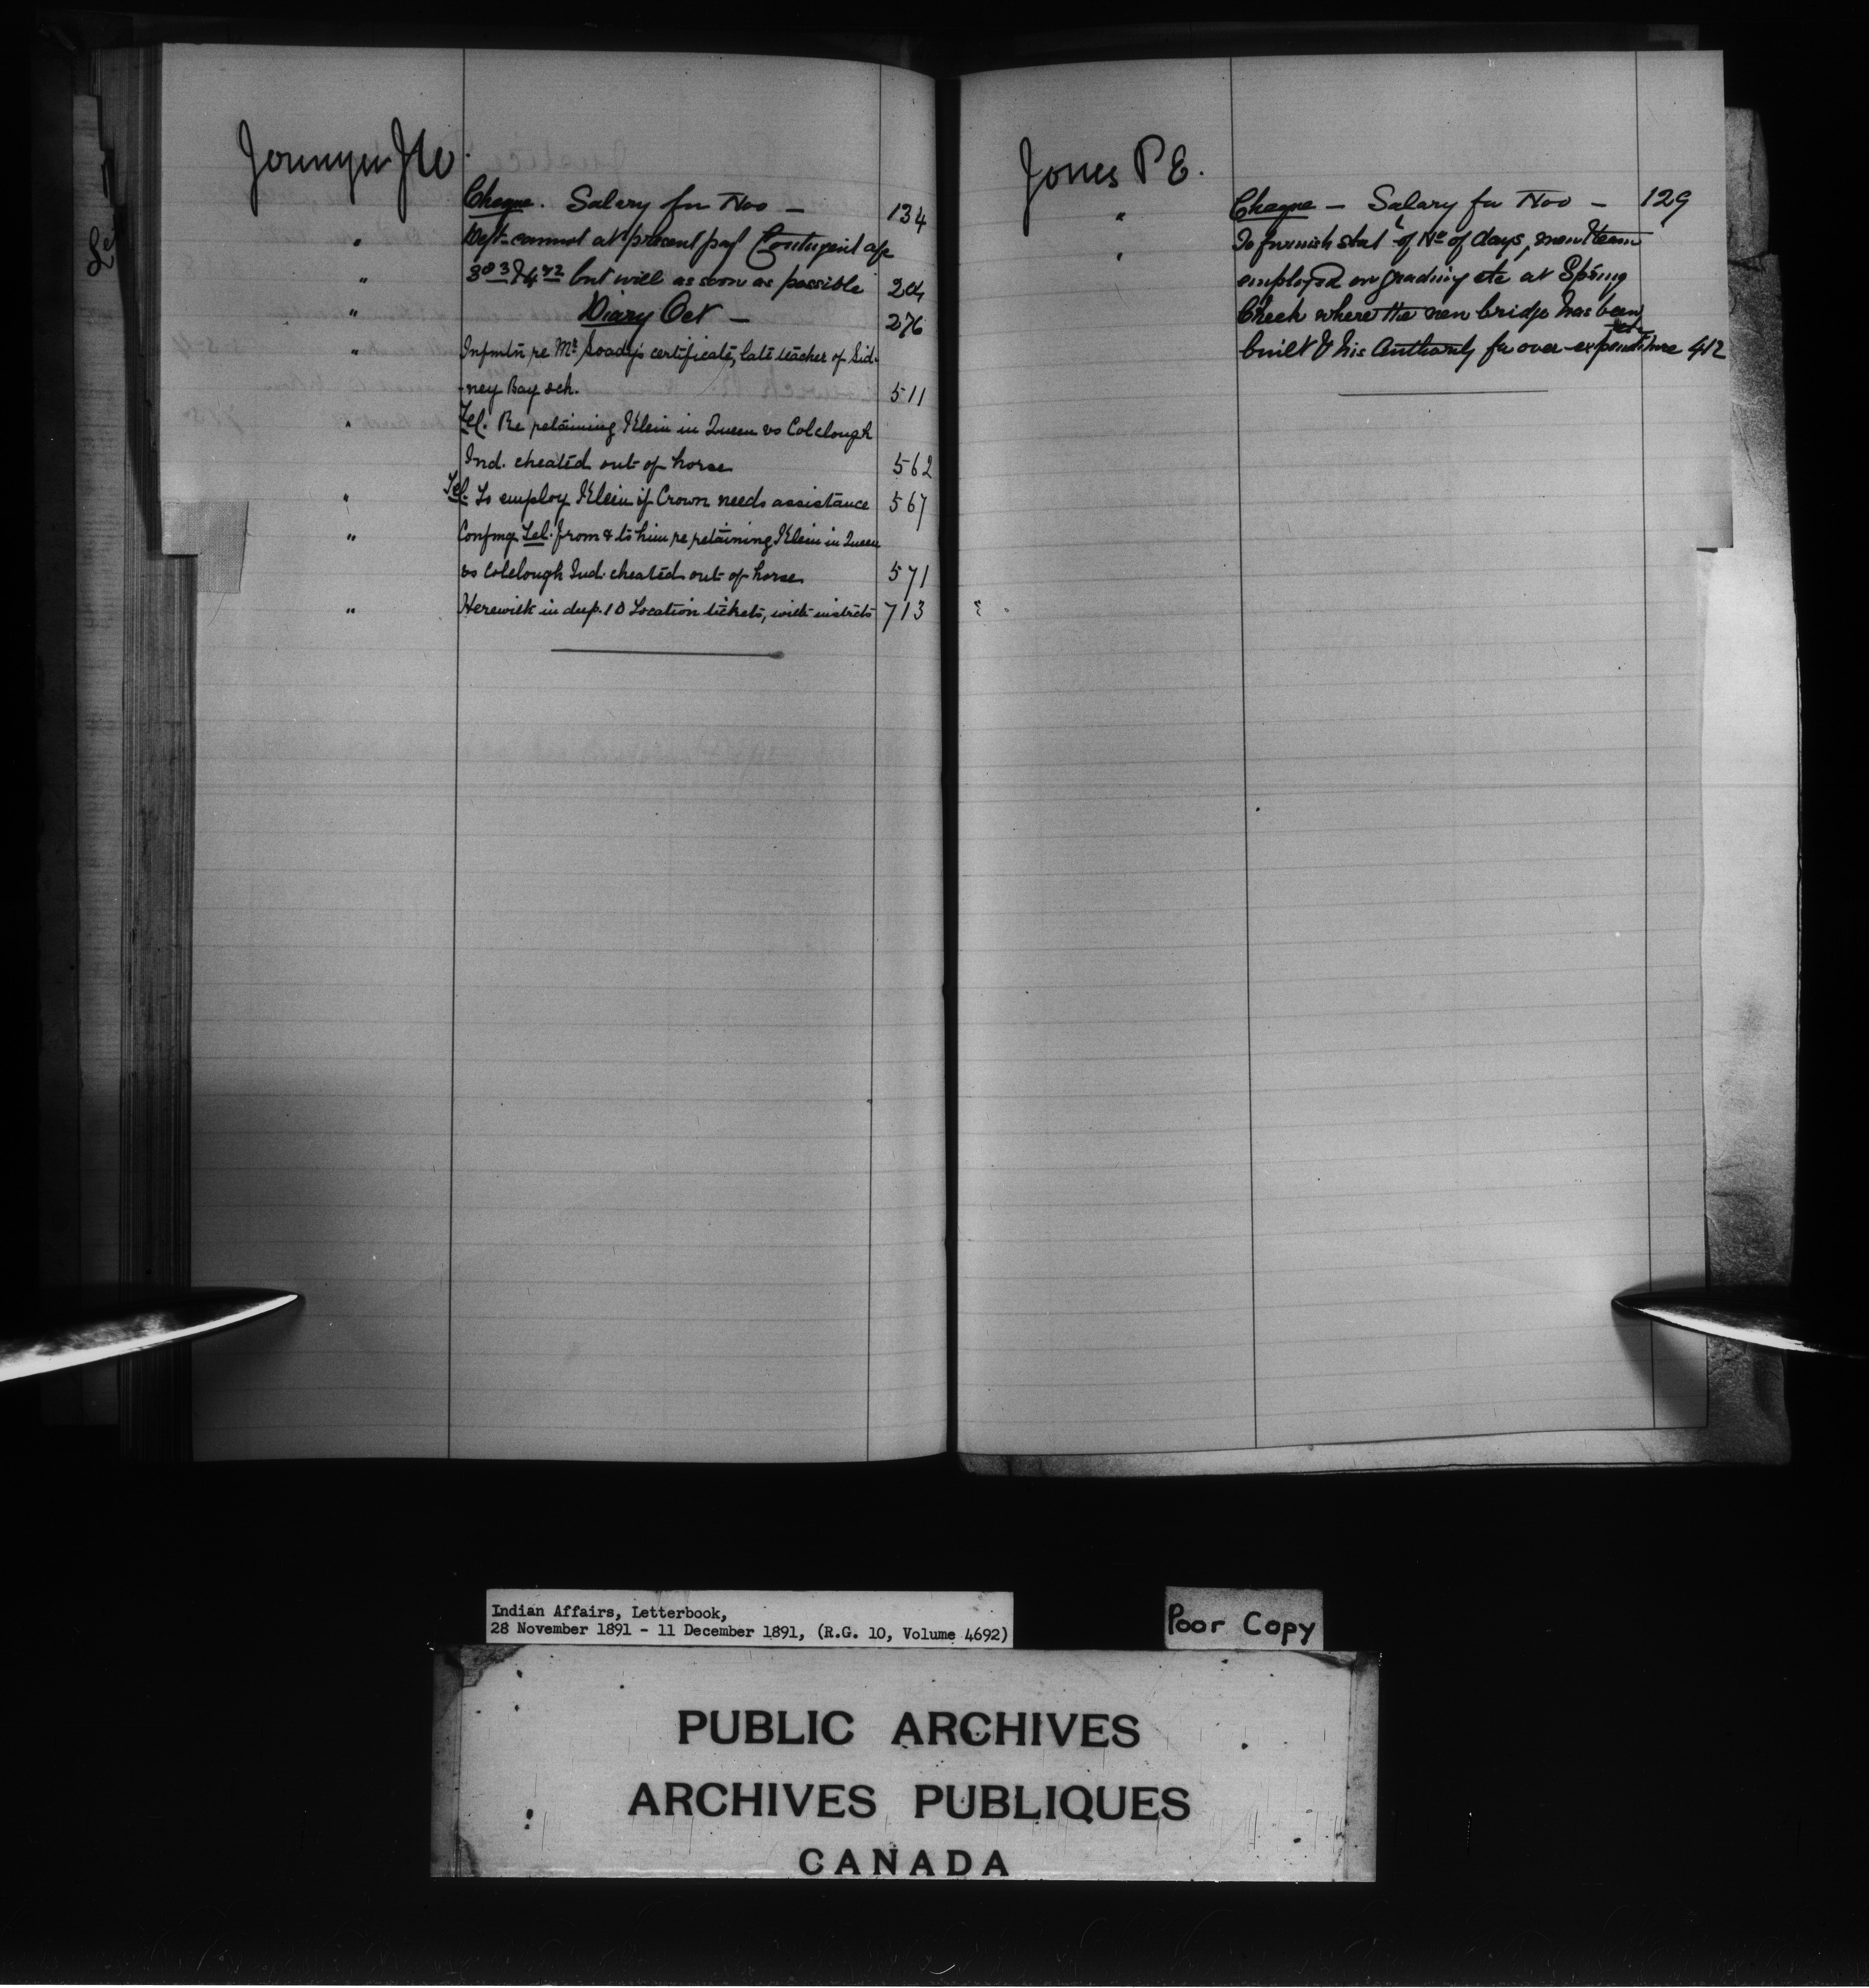 Jermyn J W.
Cheque. Salary for Nov — 134
" Dept cannot at present pay Contingent a/c
" 3rd & 4th but will as soon as possible 204
" Diary Oct — 276
" Infmtn re Mr Soady's certificate, late teacher of Sid-
-ney Bay sch. 511
" Tel. Re retaining Klein in Queen vs Colclough
Ind. cheated out of horse 562
" Tel. To employ Klein if Crown needs assistance 567
" Confmg Tel. from & to him re retaining Klein in Queen
vs Colclough Ind. cheated out of horse 571
" Herewith in dup. 10 Location tickets, with instrcts 713
Jones P E.
" Cheque — Salary for Nov — 129
" To furnish stat t of No of days, men & team
employed on grading etc at Spring
Creek where the new bridge has been
built & his Authority for over-expenditure 412
Indian Affairs, Letterbook,
28 November 1891 - 11 December 1891, (R.G. 10, Volume 4692)
Poor Copy
PUBLIC ARCHIVES
ARCHIVES PUBLIQUES
CANADA